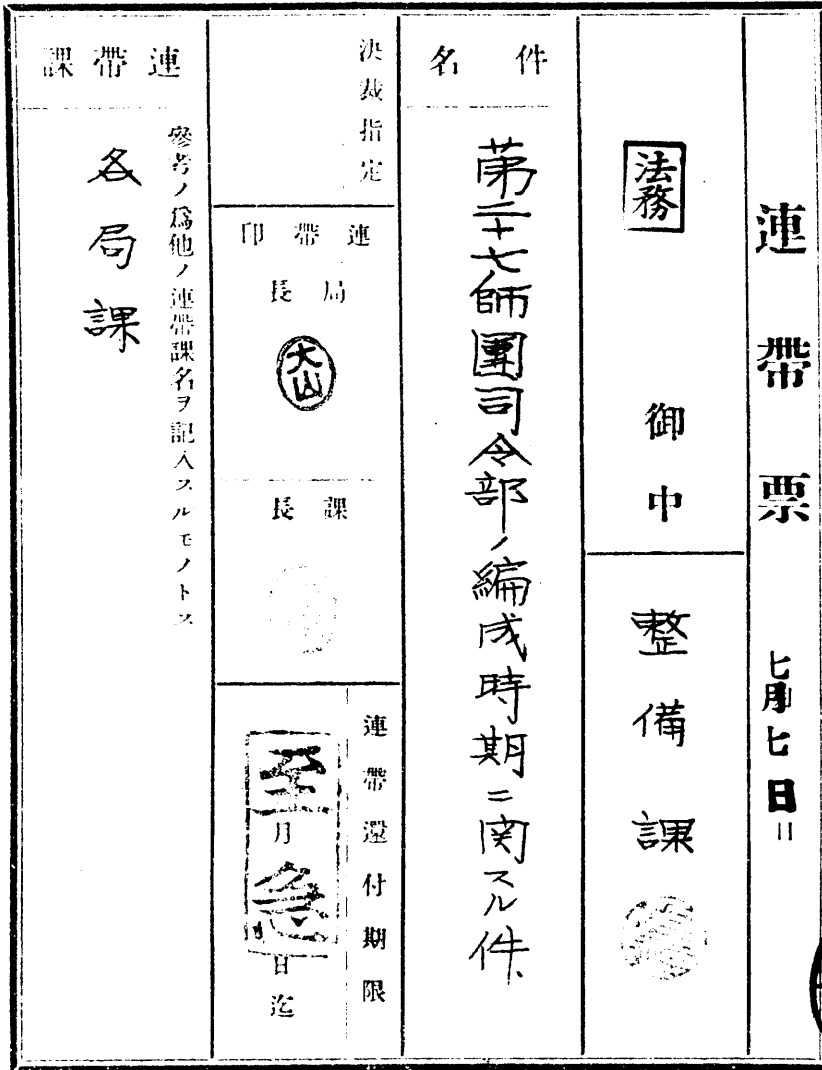 連帶票
七月七日
法務 御中
整備課
件名
第二十七師團司令部ノ編成時期ニ関スル件、
決裁指定
連帶印
局長
大山
課長
連帶還付期限
至急
月 日迄
連帶課
參考ノ爲他ノ連帶課名ヲ記入スルモノトス
各局課